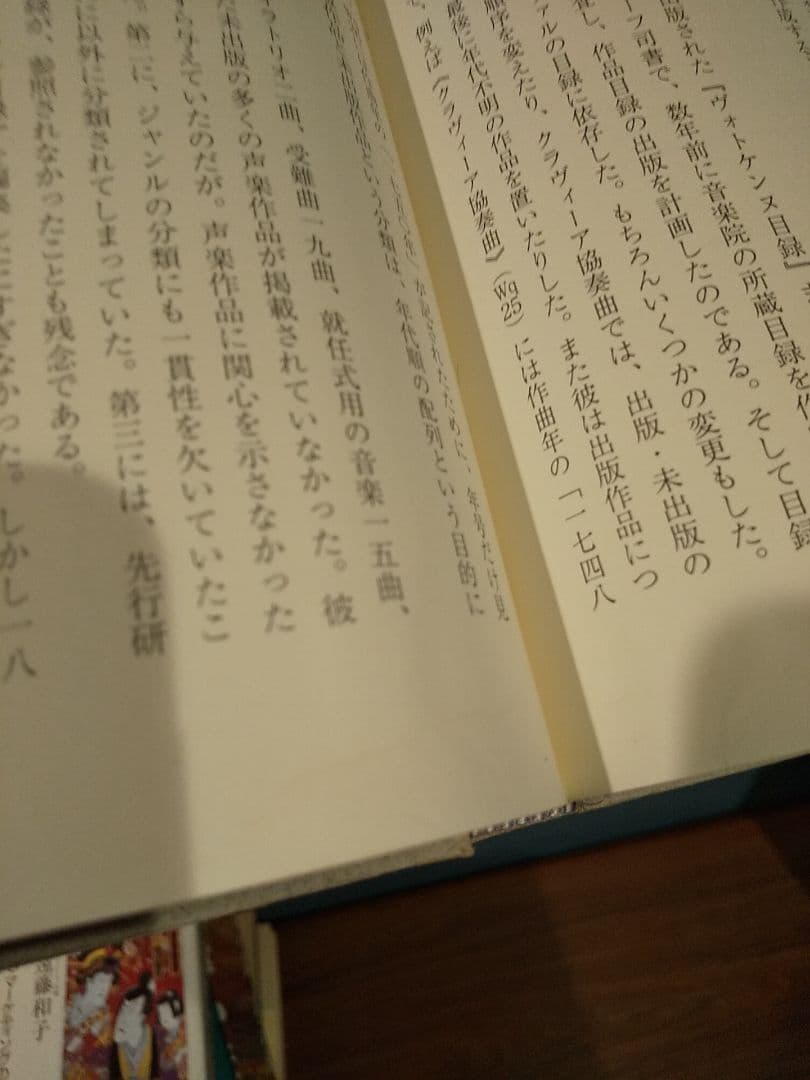 出版された『ヴォトケンヌ目録』
ーフ司書で、数年前に音楽院の所蔵目録を作
し、作品目録の出版を計画したのである。そして目録
アルの目録に依存した。もちろんいくつかの変更もした。
順序を変えたり、クラヴィーア協奏曲では、出版・未出版の
最後に年代不明の作品を置いたりした。また彼は出版作品につ
例えば《クラヴィーア協奏曲》(Wq25)には作曲年の「一七四八
が記されたために、年号だけ見
未出版作品という分類は、年代順の配列という目的に
ラトリオ二曲、受難曲一九曲、就任式用の音楽一五曲、
未出版の多くの声楽作品が掲載されていなかった。彼
与えていたのだが。声楽作品に関心を示さなかった
第二に、ジャンルの分類にも一貫性を欠いていたこ
に以外に分類されてしまっていた。第三には、先行研
録が、参照されなかったことも残念である。
にすぎなかった。しかし一八
遠藤和子